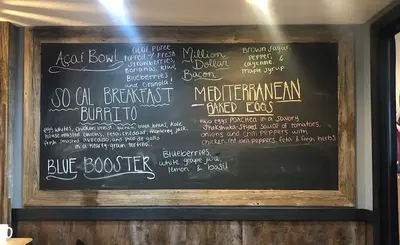 Açaí Bowl
Acai puree
topped w/ fresh
strawberries,
bananas, kiwi,
blueberries
and granola!
Million
Dollar
Bacon
Brown sugar,
pepper, &
cayenne
maple syrup
SO CAL BREAKFAST
BURRITO
egg whites, chicken breast, quinoa, black beans, kale
house roasted tomatoes, feta, cheddar, monterey jack,
fresh smashed avocado, and pico de gallo
in a hearty-grain tortilla
MEDITERRANEAN
BAKED EGGS
two eggs POACHED in a savory
Shakshuka-styled sauce of tomatoes,
onions and chili peppers with
chicken, red bell peppers, feta & fresh herbs
BLUE BOOSTER
Blueberries,
white grape juice,
lemon & basil